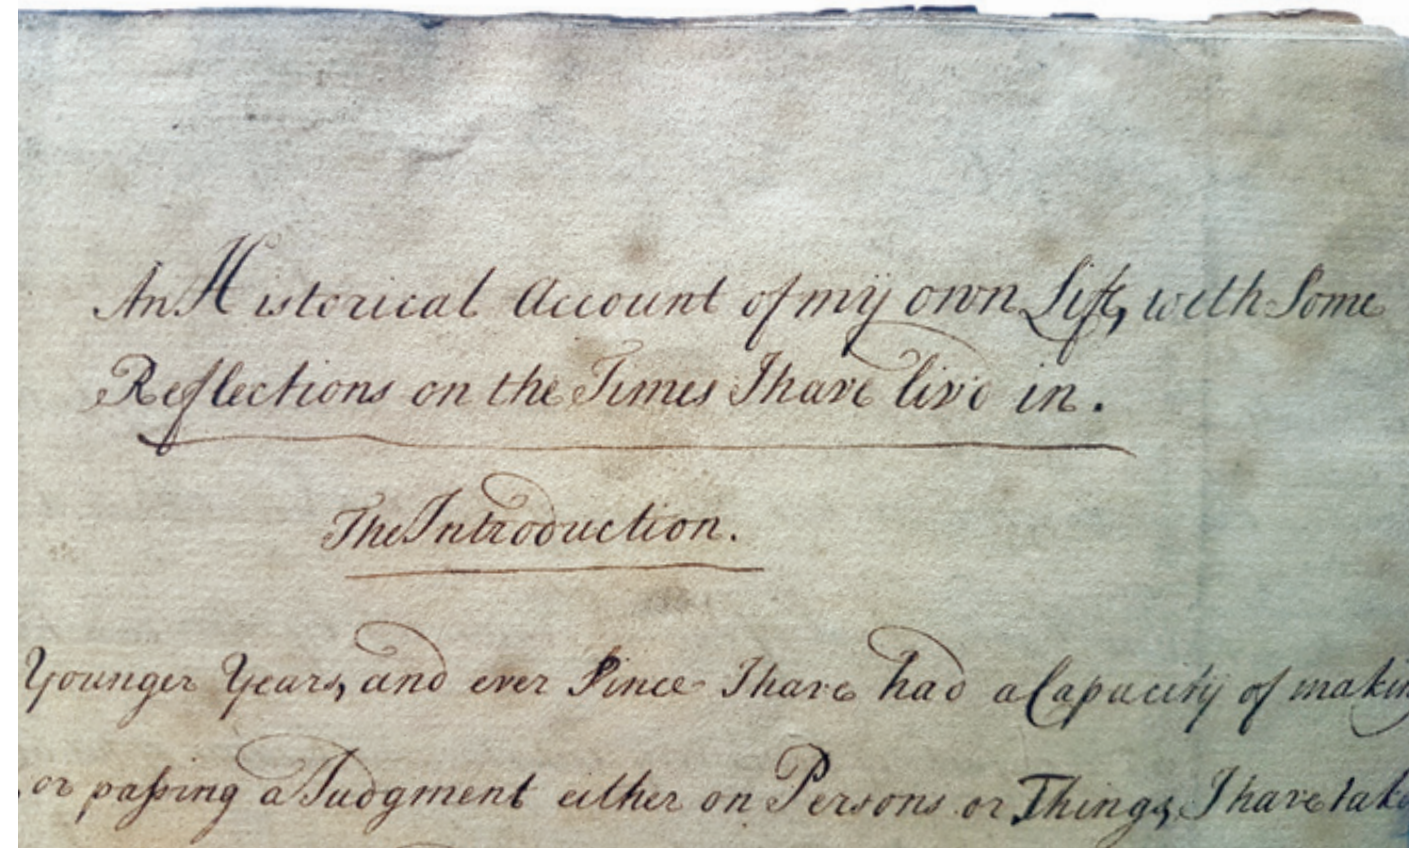 An Historical Account of my own Life, with Some
Reflections on the Times I have liv'd in.
The Introduction.
Younger Years, and ever Since I have had a Capacity of makin
, or paſsing a Judgment either on Persons or Things, I have take